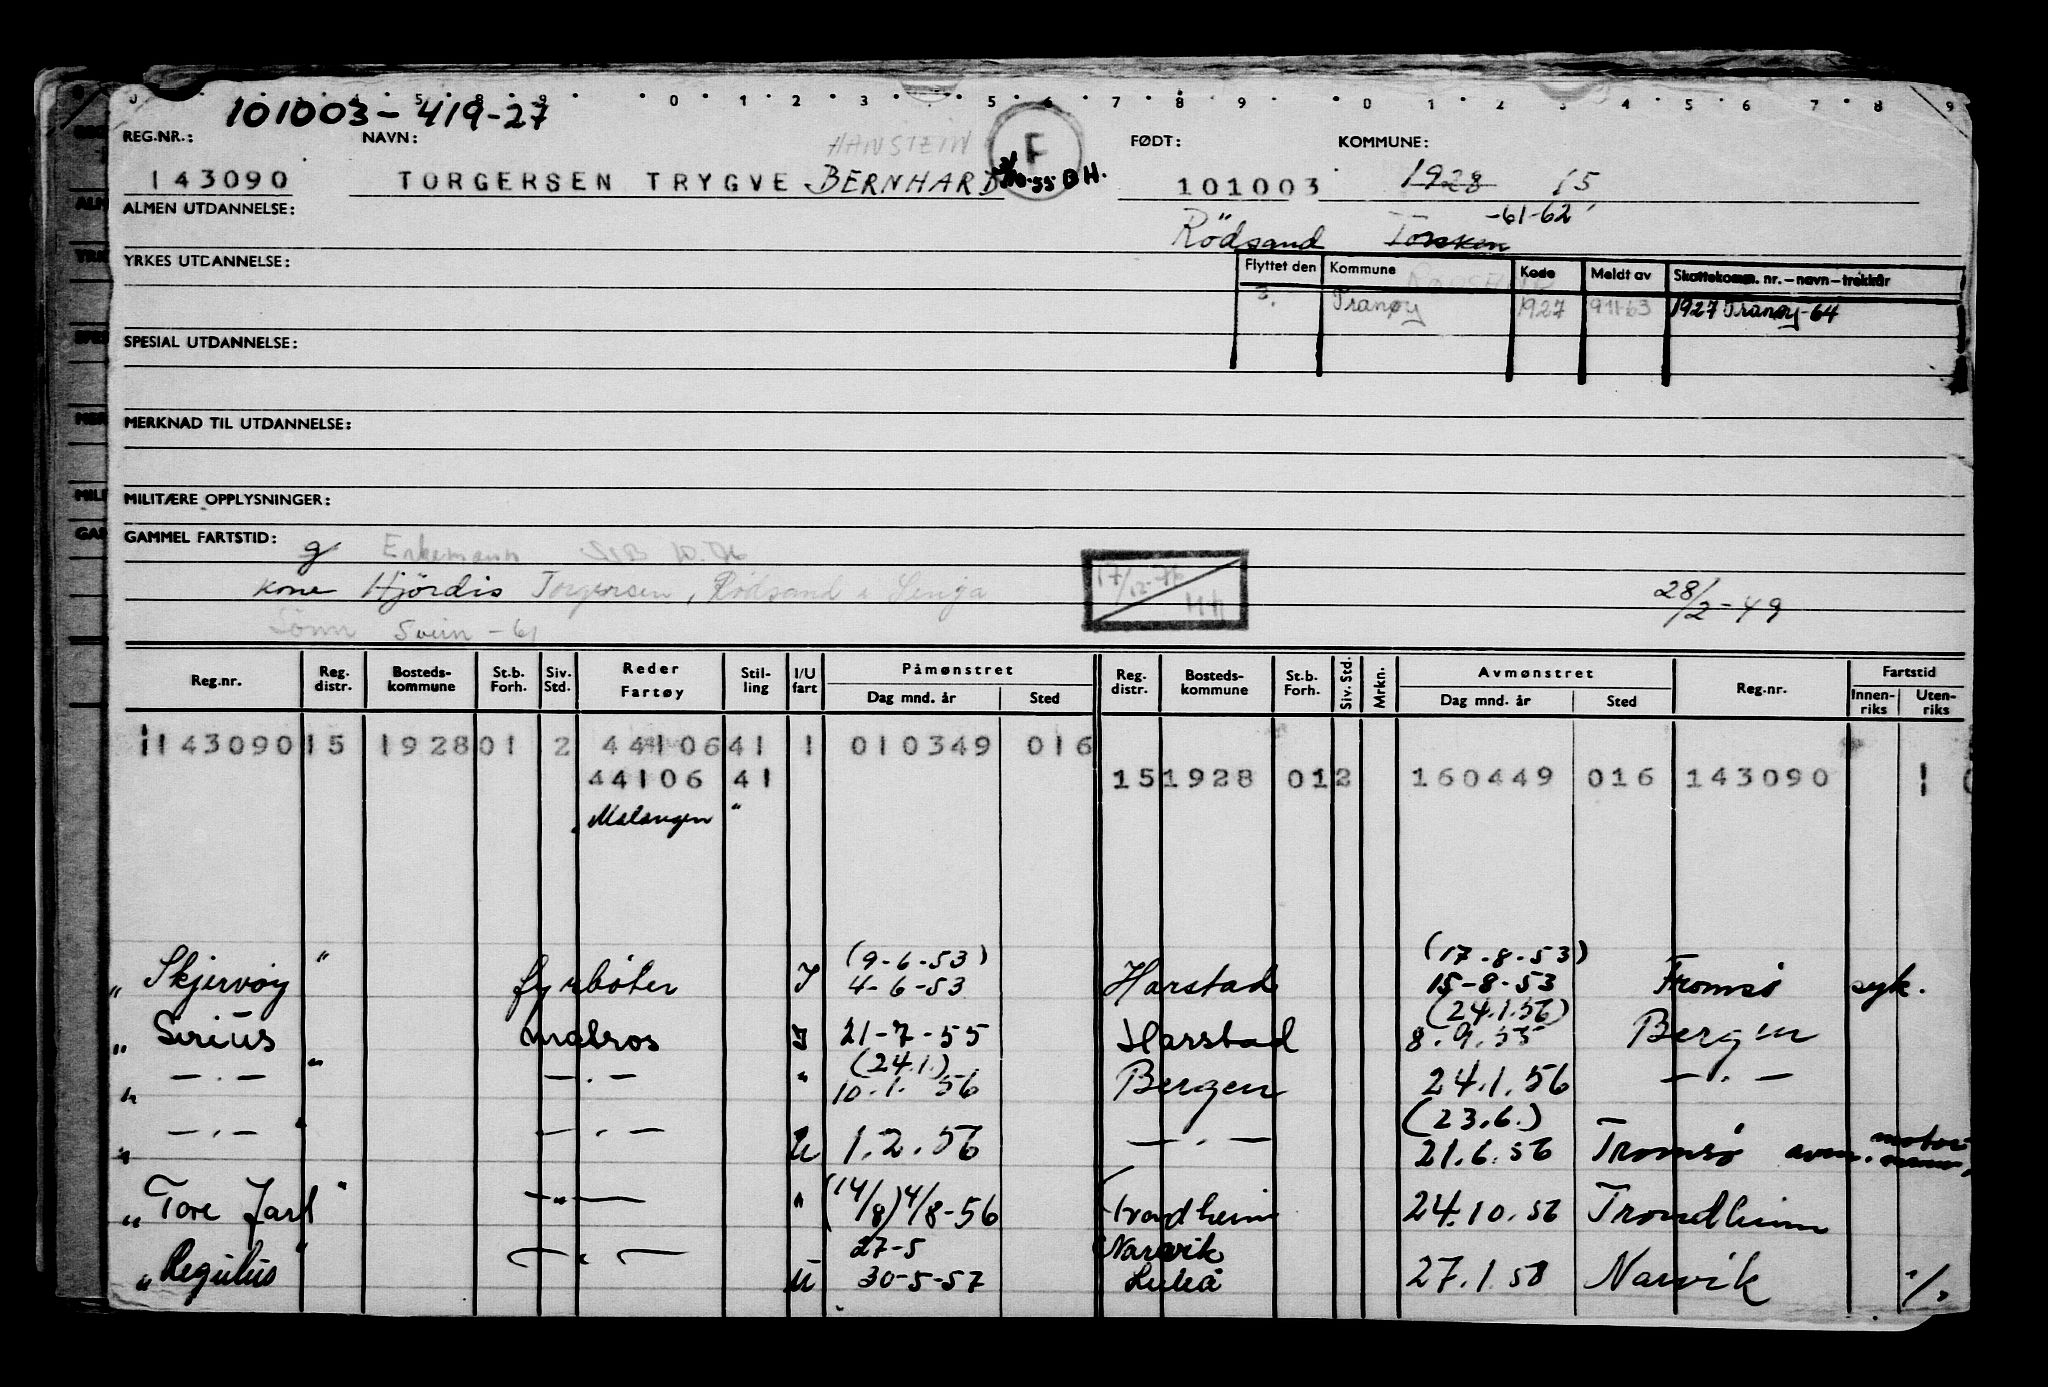 101003-419-27
REG.NR.: NAVN: HANSTEIN F FØDT: KOMMUNE:
143090 TORGERSEN TRYGVE BERNHARD 101003 1928 15
ALMEN UTDANNELSE: -61-62
Rödsand Torsken
YRKES UTDANNELSE: Flyttet den Kommune Kode Meldt av Skattekomm. nr. – navn – trekkår
3. Tranøy 1927 91163 1927 Tranøy-64
SPESIAL UTDANNELSE:
MERKNAD TIL UTDANNELSE:
MILITÆRE OPPLYSNINGER:
GAMMEL FARTSTID: g Enkemann
kone Hjördis Torgersen, Rödsand i Senja 17/12-76 28/2-49
Sönn Svein - 61
Reg.nr. Reg. distr. Bosteds-kommune St.b. Forh. Siv. Std. Reder Fartøy Stil-ling I/U fart Påmønstret Dag mnd. år Sted Reg. distr. Bosteds-kommune St.b. Forh. Siv. Std. Mrkn. Avmønstret Dag mnd. år Sted Reg.nr. Fartstid Innen-riks Uten-riks
143090 15 1928 01 2 44106 41 1 010349 016
44106 41 15 1928 01 2 160449 016 143090 1
"Malangen"
(9-6-53) (17-8-53)
"Skjervøy" fyrbøter I 4-6-53 Harstad 15-8-53 Tromsø syk.
(24.1.56)
"Sirius" matros I 21-7-55 Harstad 8.9.55 Bergen
(24.1.)
" —.— " —.— " 10.1.56 Bergen 24.1.56 —.—
(23.6.)
" —.— " —.— U 1.2.56 —.— 21.6.56 Tromsø avm. motormann
"Tore Jarl" —"— " (14/8) 4/8-56 Trondheim 24.10.56 Trondheim
27-5 Narvik
"Regulus" —.— U 30-5-57 Luleå 27.1.58 Narvik ./.